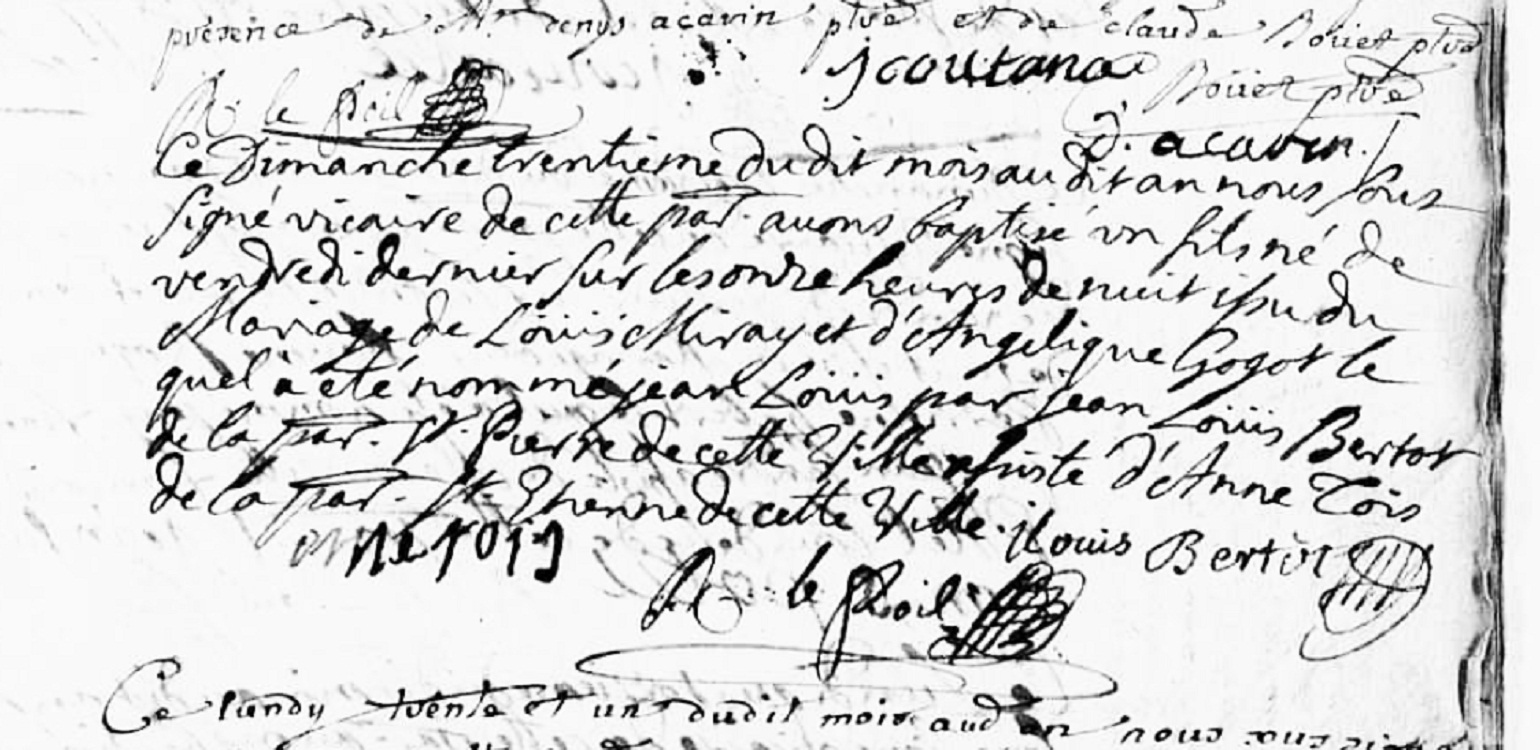 présence de Mr. denys acavin ptre et de claude Boüet ptre
J coutana
Boüet ptre
R. le Poil
D. acavin
Ce Dimanche trentieme du dit mois au dit an nous sous
signé vicaire de cette par. avons baptisé un fils né de
vendredi dernier sur les onze heures de nuit issu du
Mariage de Loüis Miray et d'Angelique Gogot le
quel a été nommé jean Loüis par jean Loüis Bertot
de la par. St. Pierre de cette Ville assisté d'Anne Tois
de la par. St. Etienne de cette Ville. jlouis Bertot
R. le Poil
Ce lundy trente et un dudit mois aud an nous